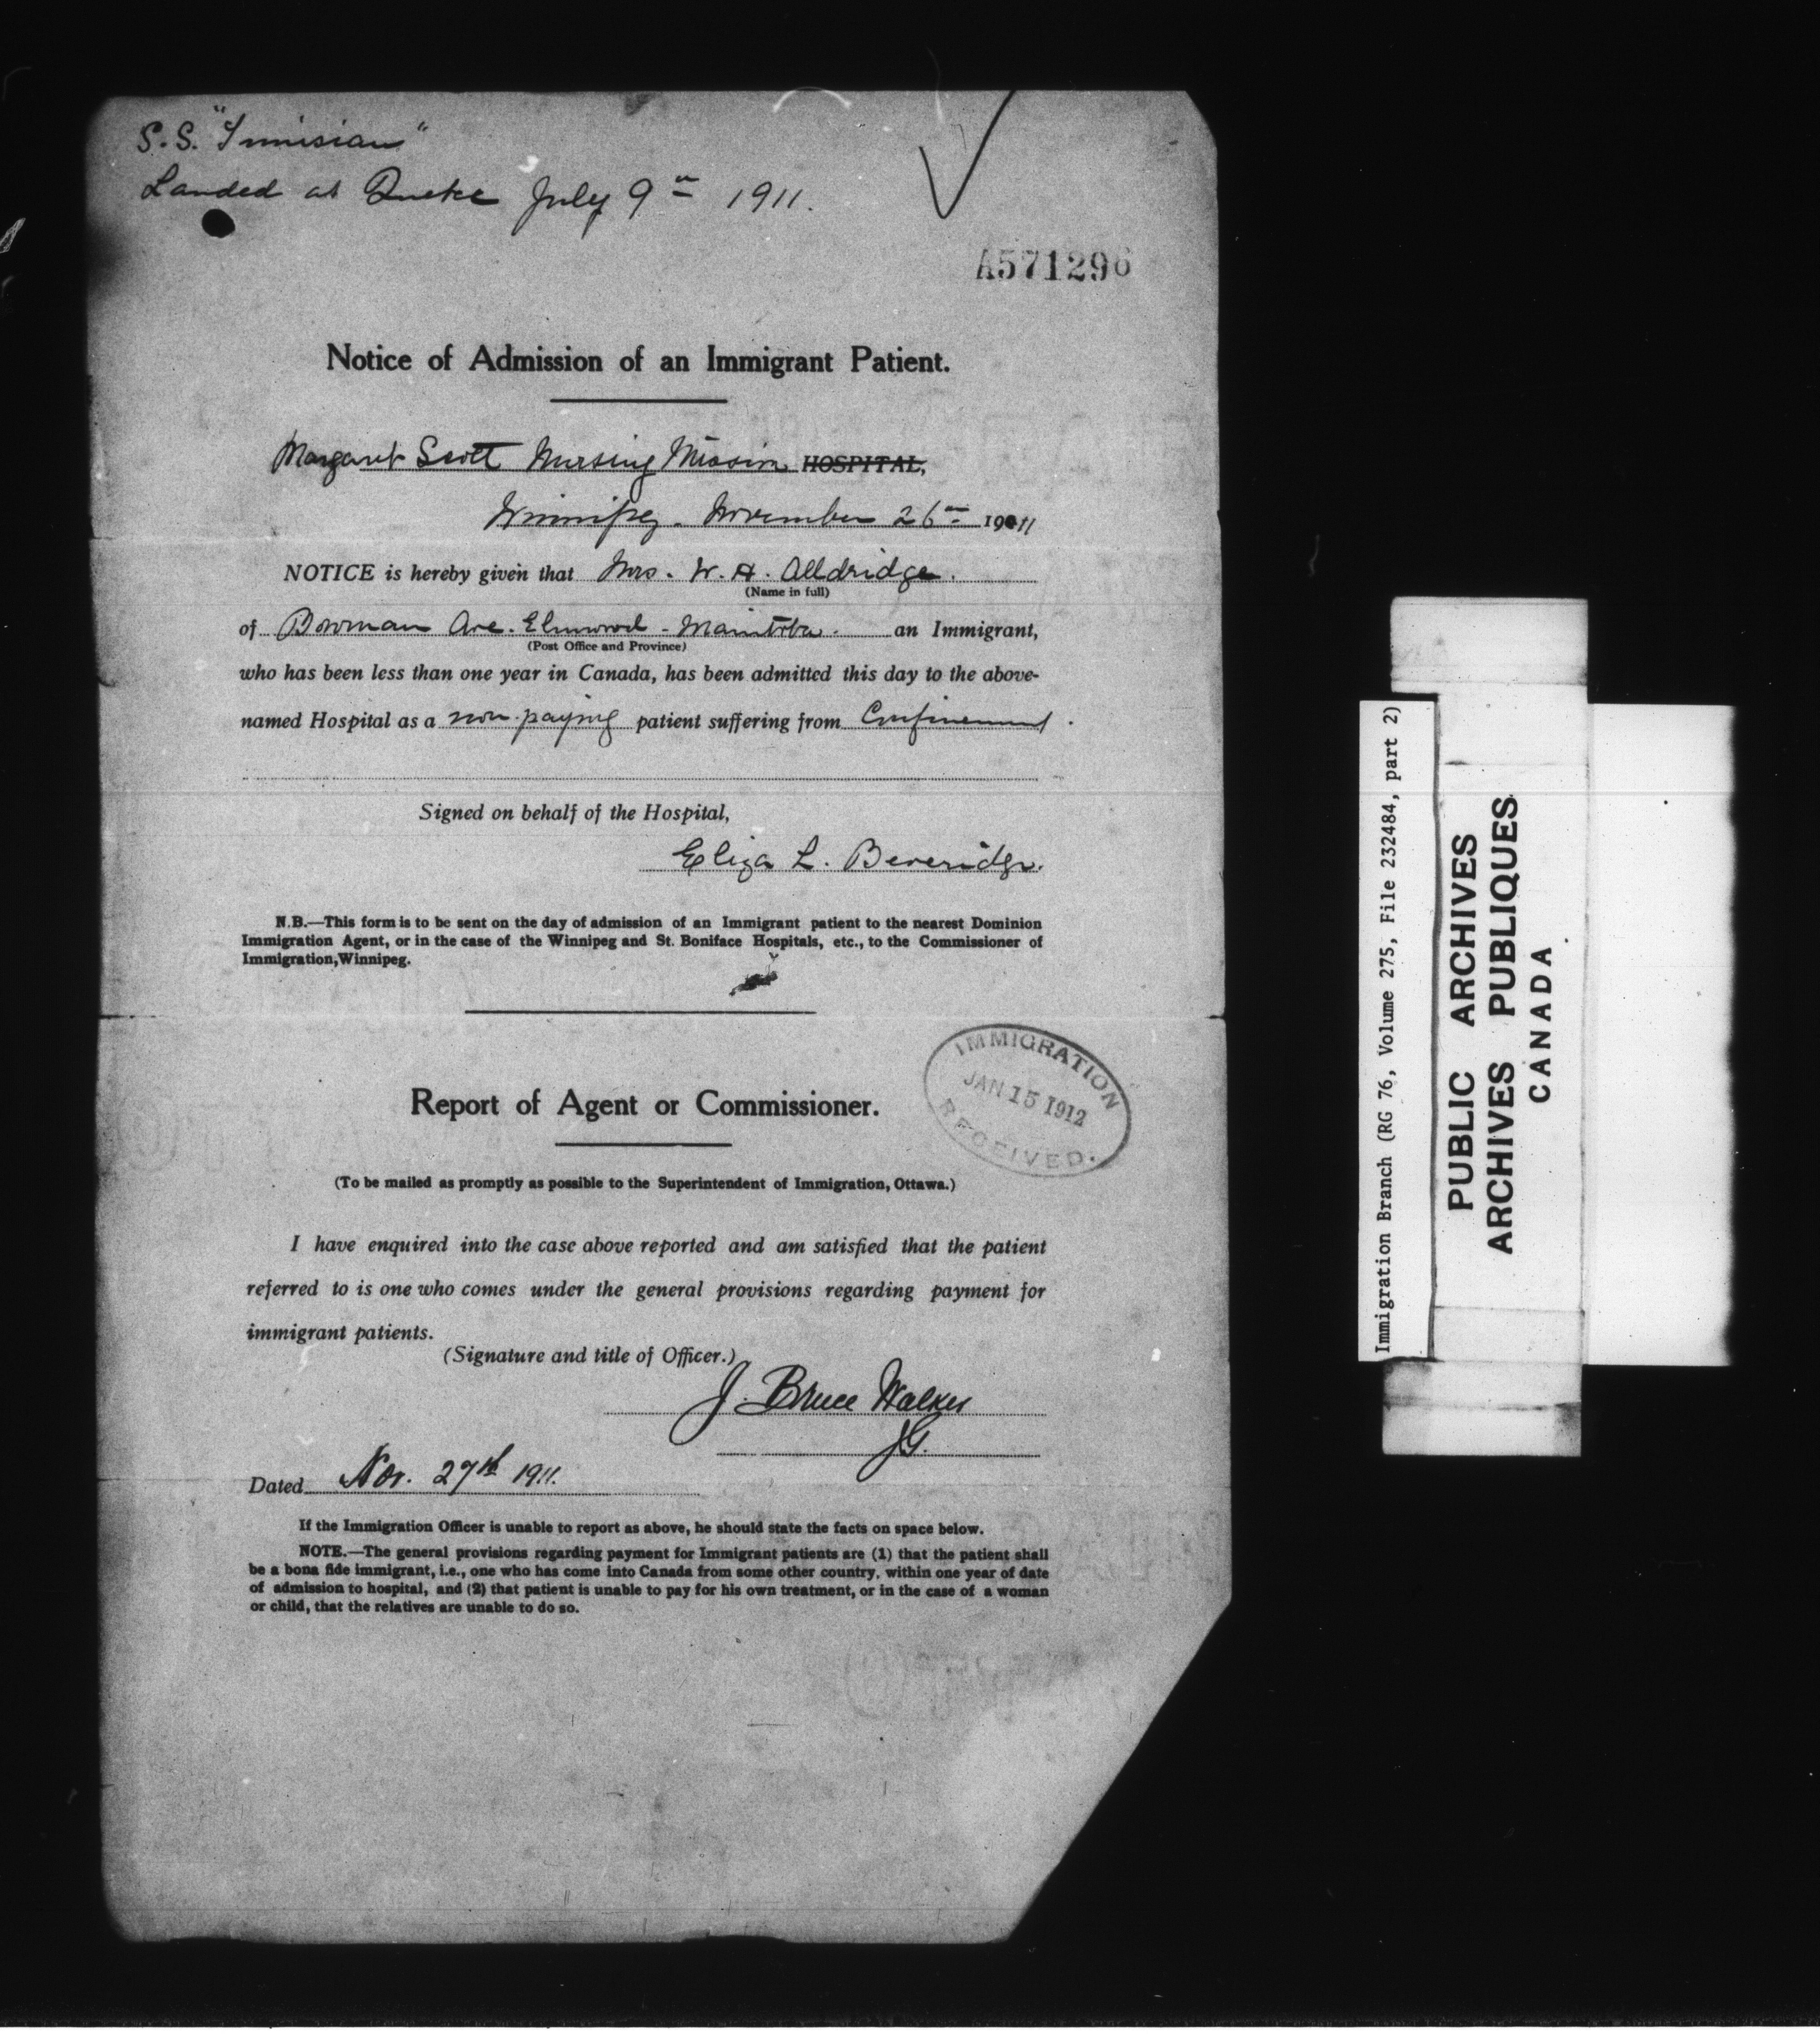 S.S. "Tunisian"
Landed at Quebec July 9th 1911.
A571296
Notice of Admission of an Immigrant Patient.
Margaret Scott Nursing Mission HOSPITAL,
Winnipeg. November 26th 1911
NOTICE is hereby given that Mrs. W. H. Alldridge.
(Name in full)
of Bowman Ave. Elmwood - Manitoba. an Immigrant,
(Post Office and Province)
who has been less than one year in Canada, has been admitted this day to the above-
named Hospital as a non-paying patient suffering from Confinement.
Signed on behalf of the Hospital,
Eliza L. Beveridge.
N.B.—This form is to be sent on the day of admission of an Immigrant patient to the nearest Dominion
Immigration Agent, or in the case of the Winnipeg and St. Boniface Hospitals, etc., to the Commissioner of
Immigration, Winnipeg.
IMMIGRATION
JAN 15 1912
RECEIVED.
Report of Agent or Commissioner.
(To be mailed as promptly as possible to the Superintendent of Immigration, Ottawa.)
I have enquired into the case above reported and am satisfied that the patient
referred to is one who comes under the general provisions regarding payment for
immigrant patients.
(Signature and title of Officer.)
J. Bruce Walker
JG.
Dated Nov. 27th 1911.
If the Immigration Officer is unable to report as above, he should state the facts on space below.
NOTE.—The general provisions regarding payment for Immigrant patients are (1) that the patient shall
be a bona fide immigrant, i.e., one who has come into Canada from some other country, within one year of date
of admission to hospital, and (2) that patient is unable to pay for his own treatment, or in the case of a woman
or child, that the relatives are unable to do so.
Immigration Branch (RG 76, Volume 275, File 232484, part 2)
PUBLIC ARCHIVES
ARCHIVES PUBLIQUES
CANADA